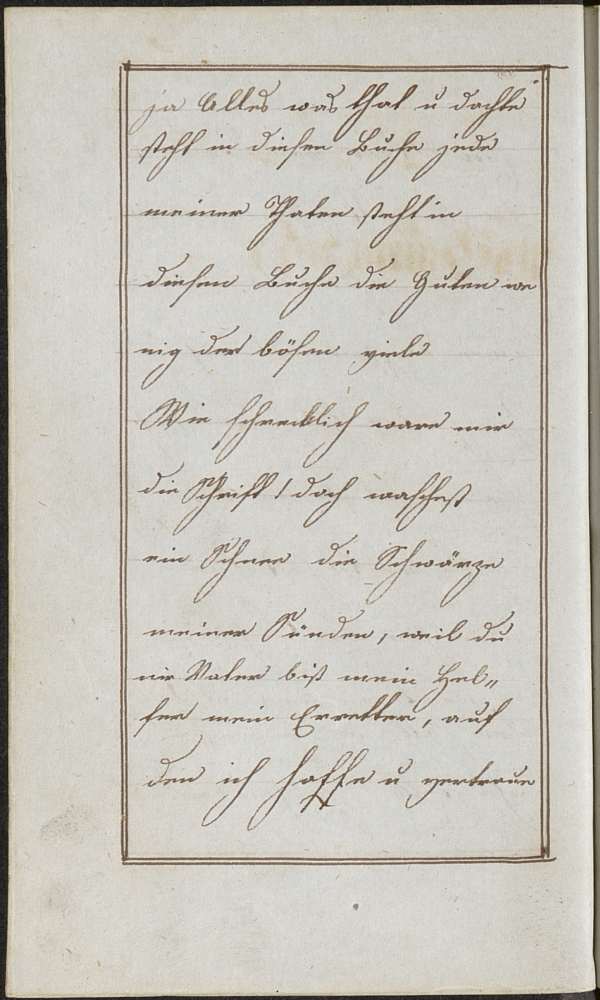 ja Alles was that u dachte
steht in diesen Buche jede
meiner Thaten steht in
diesen Buche die Guten we
nig der bösen viele
Wie schrecklich ware mir
die Schrift! doch waschest
ein Schnee die Schwärze
meiner Sünden, weil du
mir Vater bist mein Hel„
fer mein Erretter, auf
den ich hoffe u vertraue